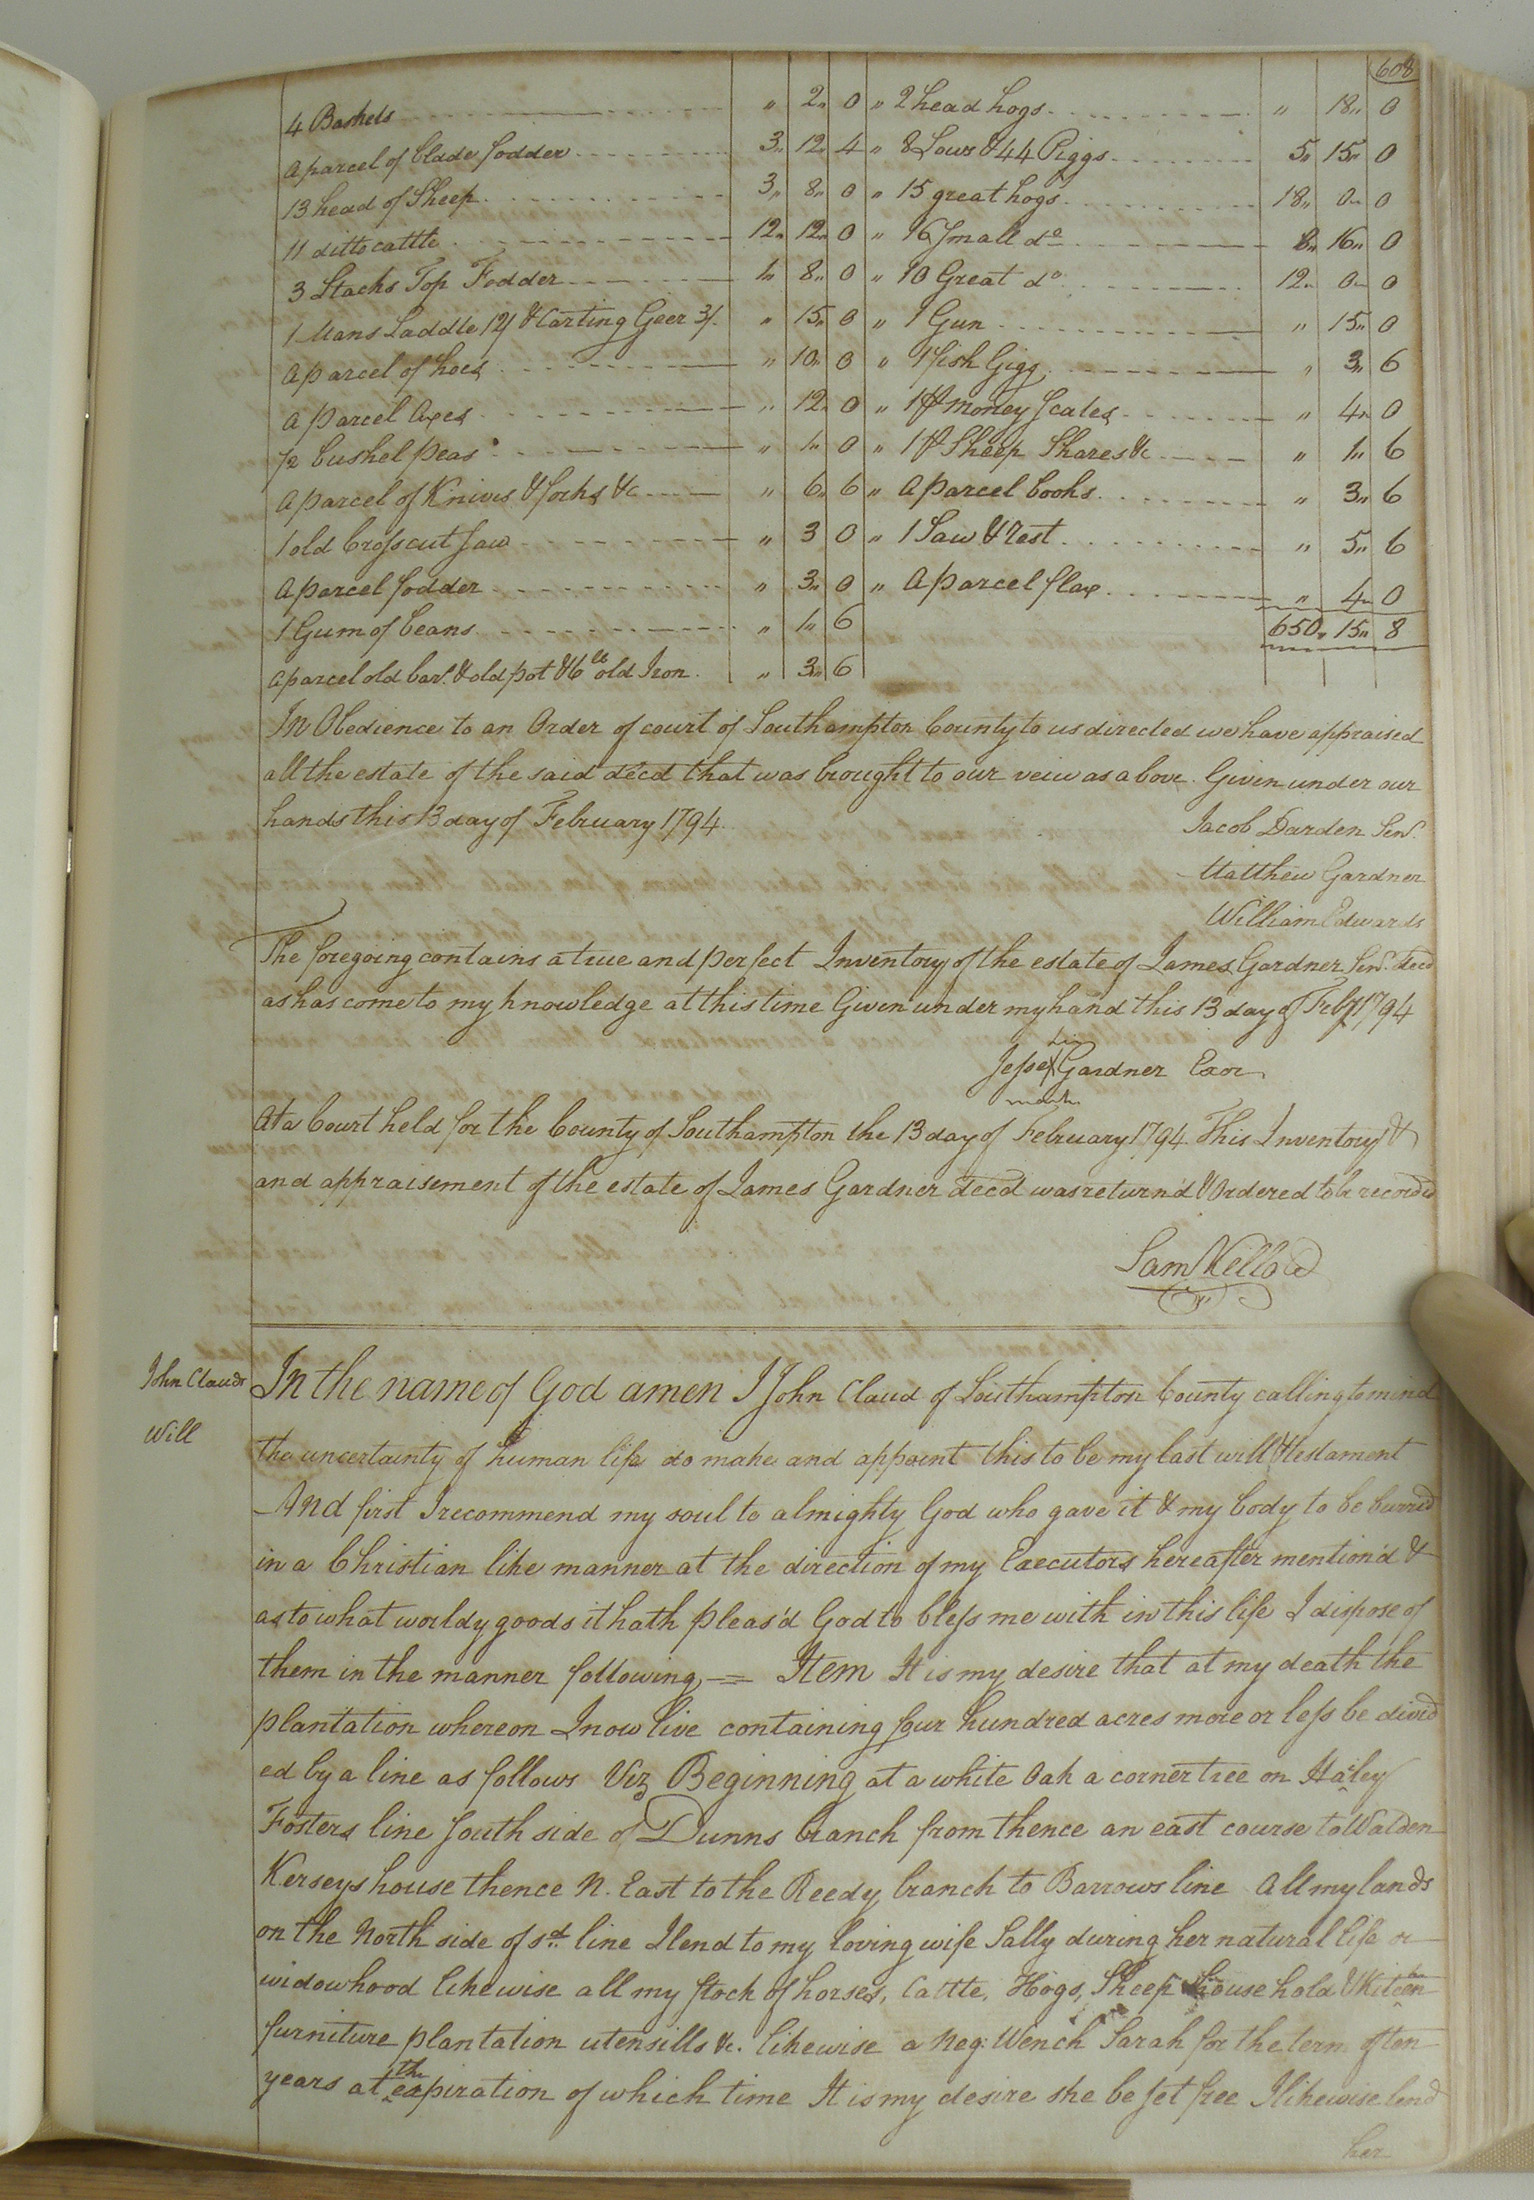 608
4 Baskets " 2" 0 " 2 head hogs " 18" 0
a parcel of blade fodder 3" 12" 4 " 8 Sows & 44 Piggs 5" 15" 0
13 head of Sheep 3" 8" 0 " 15 great hogs 18" 0" 0
11 ditto cattle 12" 12" 0 " 16 Small do 8" 16" 0
3 Stacks Top Fodder 1" 8" 0 " 10 Great do 12" 0" 0
1 Mans Saddle 12/ & Carting Geer 3/. " 15" 0 " 1 Gun " 15" 0
a parcel of hoes " 10" 0 " 1 fish Gigg " 3" 6
a parcel Axes " 12" 0 " 1 pr money Scales " 4" 0
1/2 bushel peas " 1" 0 " 1 pr Sheep Shares &c " 1" 6
a parcel of Knives & forks &c " 6" 6 " a parcel books " 3" 6
1 old Crosscut saw " 3 0 " 1 Saw & Rest " 5" 6
a parcel fodder " 3" 0 " a parcel flax " 4" 0
1 Gum of beans " 1" 6 650" 15" 8
a parcel old bar. & old pot & 6 lb old Iron " 3" 6
In Obedience to an Order of court of Southampton County to us directed we have appraised
all the estate of the said decd that was brought to our veiw as above. Given under our
hands this 13 day of February 1794
Jacob Darden Senr.
Matthew Gardner
William Edwards
The foregoing contains a true and perfect Inventory of the estate of James Gardner Senr. decd
as has come to my knowledge at this time Given under my hand this 13 day of Feby 1794
his
Jesse X Gardner Exor
mark
At a Court held for the County of Southampton the 13 day of February 1794 This Inventory &
and appraisement of the estate of James Gardner decd was return'd & Ordered to be recorded
Sam Kello
John Clauds
Will
In the name of God amen I John Claud of Southampton County calling to mind
the uncertainty of human life do make and appoint this to be my last will & testament
And first I recommend my soul to almighty God who gave it & my body to be burried
in a Christian like manner at the direction of my Executors hereafter mention'd &
as to what worldy goods it hath pleas'd God to bless me with in this life I dispose of
them in the manner following Item It is my desire that at my death the
plantation whereon I now live containing four hundred acres more or less be divid
ed by a line as follows Viz Beginning at a white Oak a corner tree on Hailey
Fosters line South side of Dunns branch from thence an east course to Walden
Kerseys house thence N. East to the Reedy branch to Barrows line All my lands
on the North side of sd. line I lend to my loving wife Sally during her natural life or
widowhood likewise all my stock of horses, Cattle, Hogs, Sheep house hold & Kitchen
furniture plantation utensills &c. likewise a Neg: Wench Sarah for the term of ten
years at the expiration of which time It is my desire she be set free I likewise lend
her